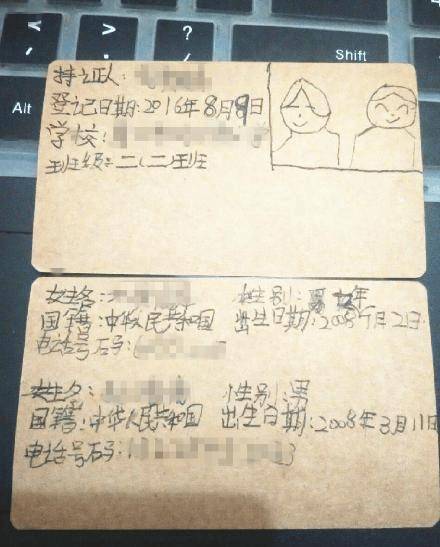 <
,
>
.
?
/
Shift
Alt
持证人:
登记日期:2016年8月9日
学校:
班级:二(二)班
姓名:
性别:女
国籍:中华人民共和国
出生日期:2008年 月2日
电话号码:
姓名:
性别:男
国籍:中华人民共和国
出生日期:2008年3月11日
电话号码: 3